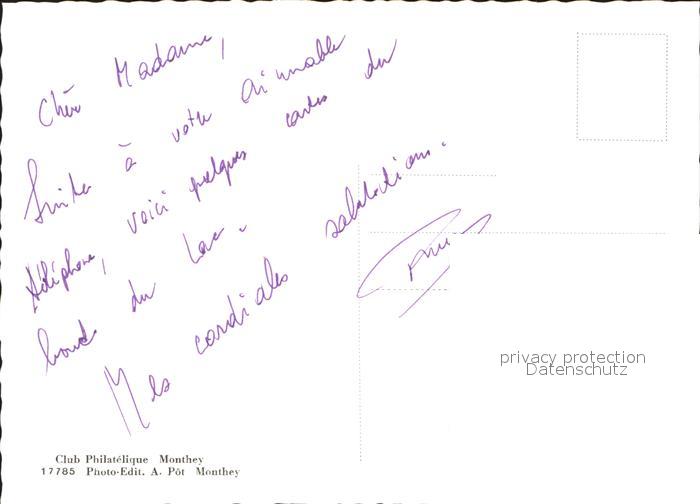 Chère Madame,
Suite à votre aimmable
téléphone, voici quelques cartes du
bord du Lac.
Mes cordiales salutations.
privacy protection
Datenschutz
Club Philatélique Monthey
17785 Photo-Edit. A. Pôt Monthey